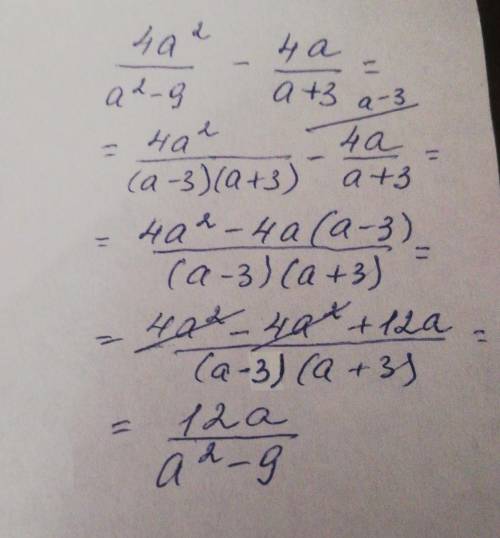 4a²/(a²-9) - 4a/(a+3) =
a-3
= 4a²/((a-3)(a+3)) - 4a/(a+3) =
= (4a² - 4a(a-3))/((a-3)(a+3)) =
= (4a² - 4a² + 12a)/((a-3)(a+3)) =
= 12a/(a²-9)